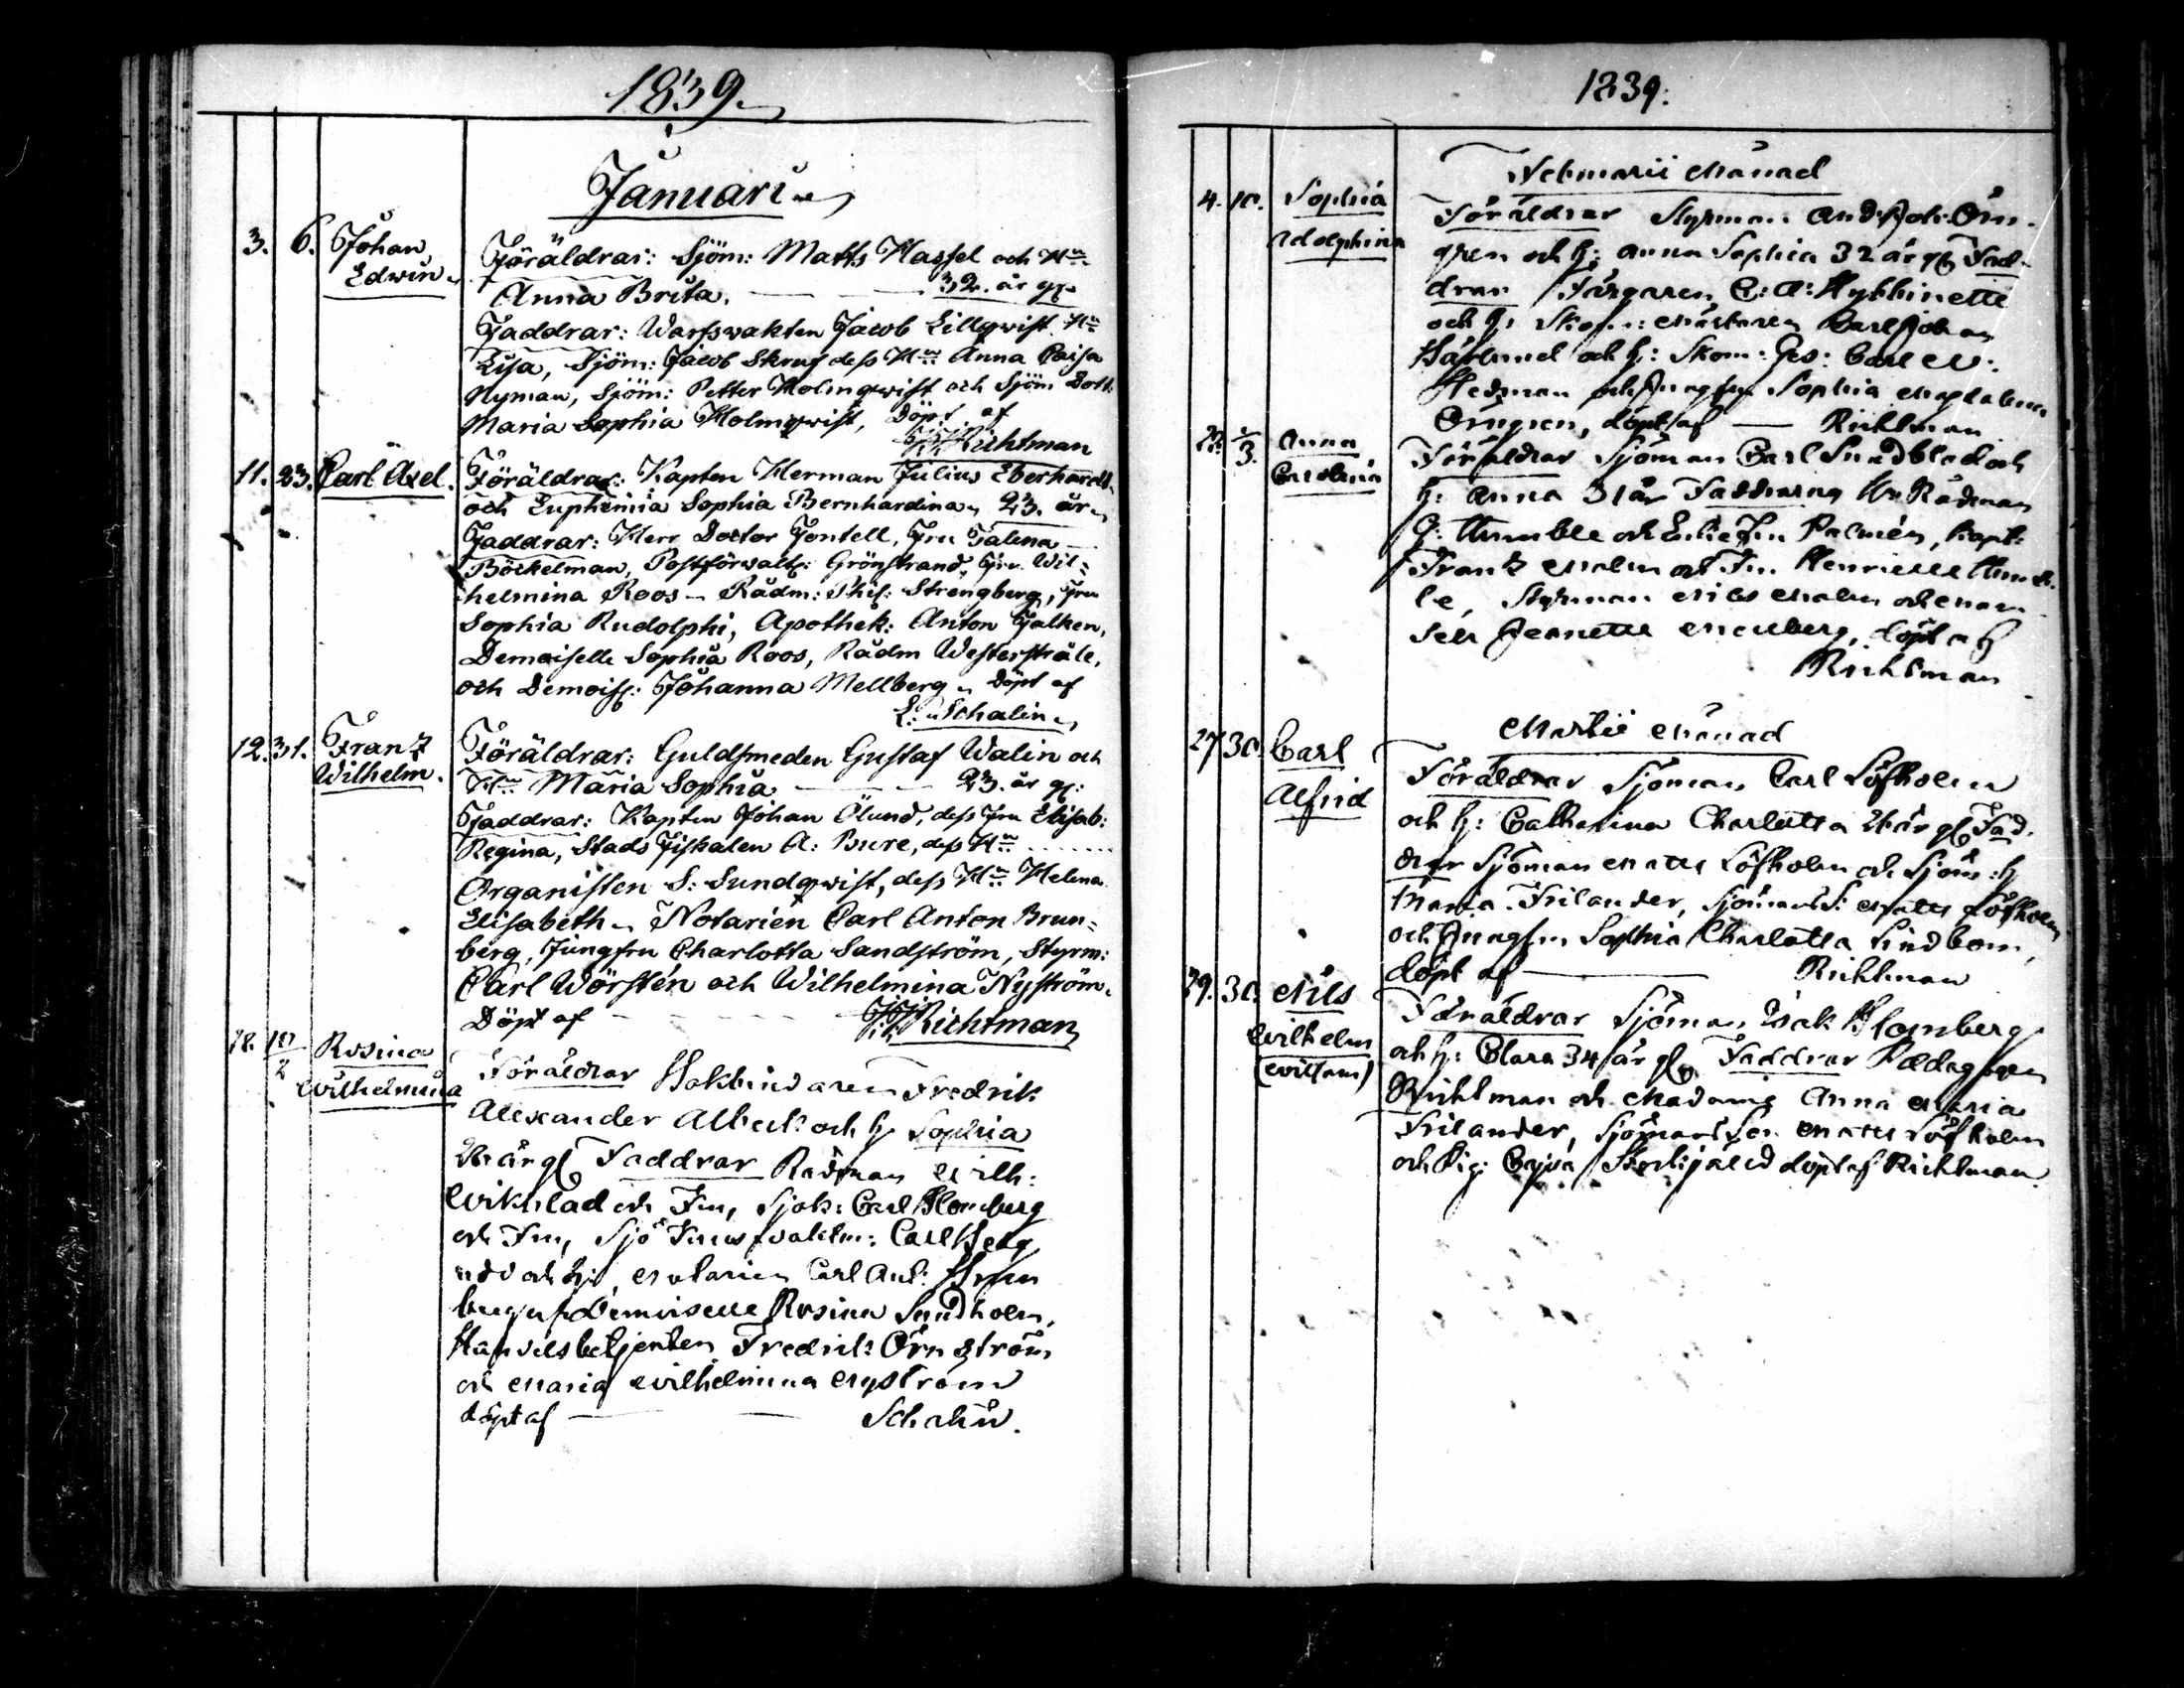 1839.
Januari
3. 6. Johan Edwin
Föräldrar: Sjöm: Matts Hassel och H:n
Anna Brita. — — 32. år gl.
Faddrar: Warfswakten Jacob Lillqwist H:n
Lisa, Sjöm: Jacob Skruf dess H:u Anna Caisa
Nyman, Sjöm: Petter Holmqwist och Sjöm Dott:
Maria Sophia Holmqwist, Döpt af
Richtman
11. 23. Carl Axel.
Föräldrar: Kapten Herman Julius Eberhardt
och Euphemia Sophia Bernhardina 23. år
Faddrar: Herr Doctor Fontell, Fru Galena
Böckelman, Postförvalt: Grönstrand, Fru Wil-
helmina Roos — Rådm: Phil: Strengberg, Fru
Sophia Rudolphi, Apothek: Anton Falken,
Demoiselle Sophia Roos, Rådm Westerstråle,
och Demois: Johanna Mellberg Döpt af
E: Schalin
12. 31. Franz Wilhelm.
Föräldrar: Guldsmeden Gustaf Walin och
H:u Maria Sophia — 23. år gl:
Faddrar: Kapten Johan Ölund, dess Fru Elisab:
Regina, Stads Fiskalen A: Bure, dess H:u ......
Organisten S: Sundqwist, dess H:u Helena
Elisabeth Notarien Carl Anton Brun-
berg, Jungfru Charlotta Sandström, Styrm:
Carl Wörstén och Wilhelmina Nyström.
Döpt af — — — Richtman
18. 10/2 Rosina Wilhelmina
Föräldrar Bokbindaren Fredrik
Alexander Albeck och h: Sophia
26 år gl Faddrar Rådman Wilh:
Wikblad och Fru, Sjök: Carl Blomberg
och Fru, Sjö Carl Berg
och h:, Notarien Carl Ant: Brun
berg Demoiselle Rosina Sundholm,
Handelsbetjenten Fredrik Örnström
och Maria Wilhelmina Nyström
döpt af — — Schalin.
1839.
Februarii Månad
4. 10. Sophia Adolphina
Föräldrar Styrman And: Joh: Örn-
gren och h: Anna Sophia 32 år gl Fad-
drar Färgaren C: A: Hybbinette
och h: Skom: Mästaren Carl Johan
Härlund och h: Skom: Ges: Carl W:
Hedman och Jungfru Sophia Magdalena
Örngren, döpt af — Richtman
22. 1/3. Anna Carolina
Föräldrar Sjöman Carl Sundblad och
h: Anna 31 år Faddrarna Hr Rådman
G: Humble och Enke Fru Palmén, Kapt:
Frantz Malm och Fru Henriette Hum
le, Styrman Nils Malm och Mam
sell Jeanette Menberg, döpt af
Richtman
Martii Månad
27 30. Carl Alfrid
Föräldrar Sjöman Carl Löfholm
och h: Catharina Charlotta 26 år gl Fad-
drar Sjöman Matts Löfholm och Sjöm: h
Maria Frilander, Sjömans S: Matts Löfholm
och Jungfru Sophia Charlotta Lindbom,
döpt af — Richtman
29. 30. Nils Wilhelm (William)
Föräldrar Sjöman Isak Blomberg
och h: Clara 34 år gl Faddrar Pædagogen
Richtman och Madame Anna Maria
Frilander, Sjömans Son Matts Löfholm
och Pig: Cajsa döpt af Richtman.